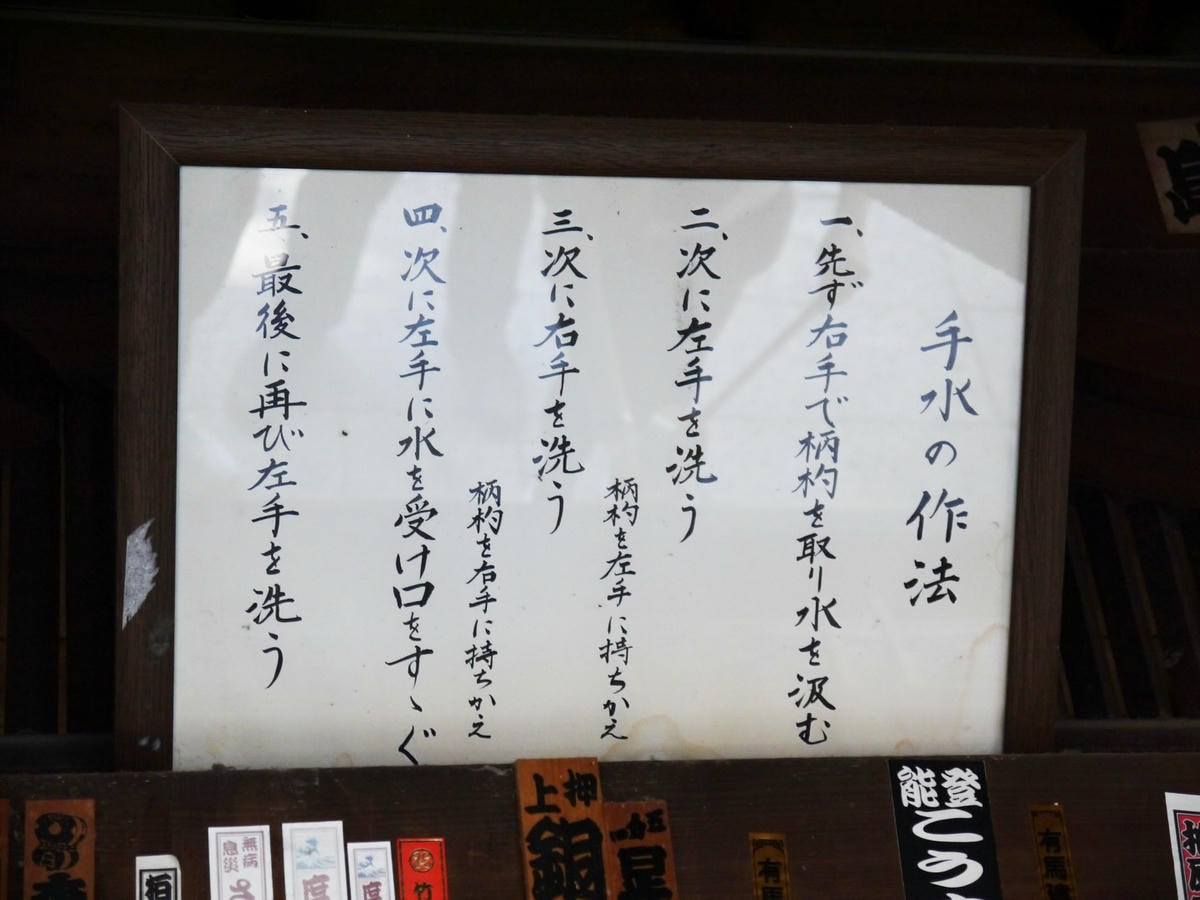 手水の作法
一、先ず右手で柄杓を取り水を汲む
二、次に左手を洗う
柄杓を左手に持ちかえ
三、次に右手を洗う
柄杓を右手に持ちかえ
四、次に左手に水を受け口をすゝぐ
五、最後に再び左手を洗う
登
能
こう
押
上
銅
有馬
有馬
無病
息災
竹